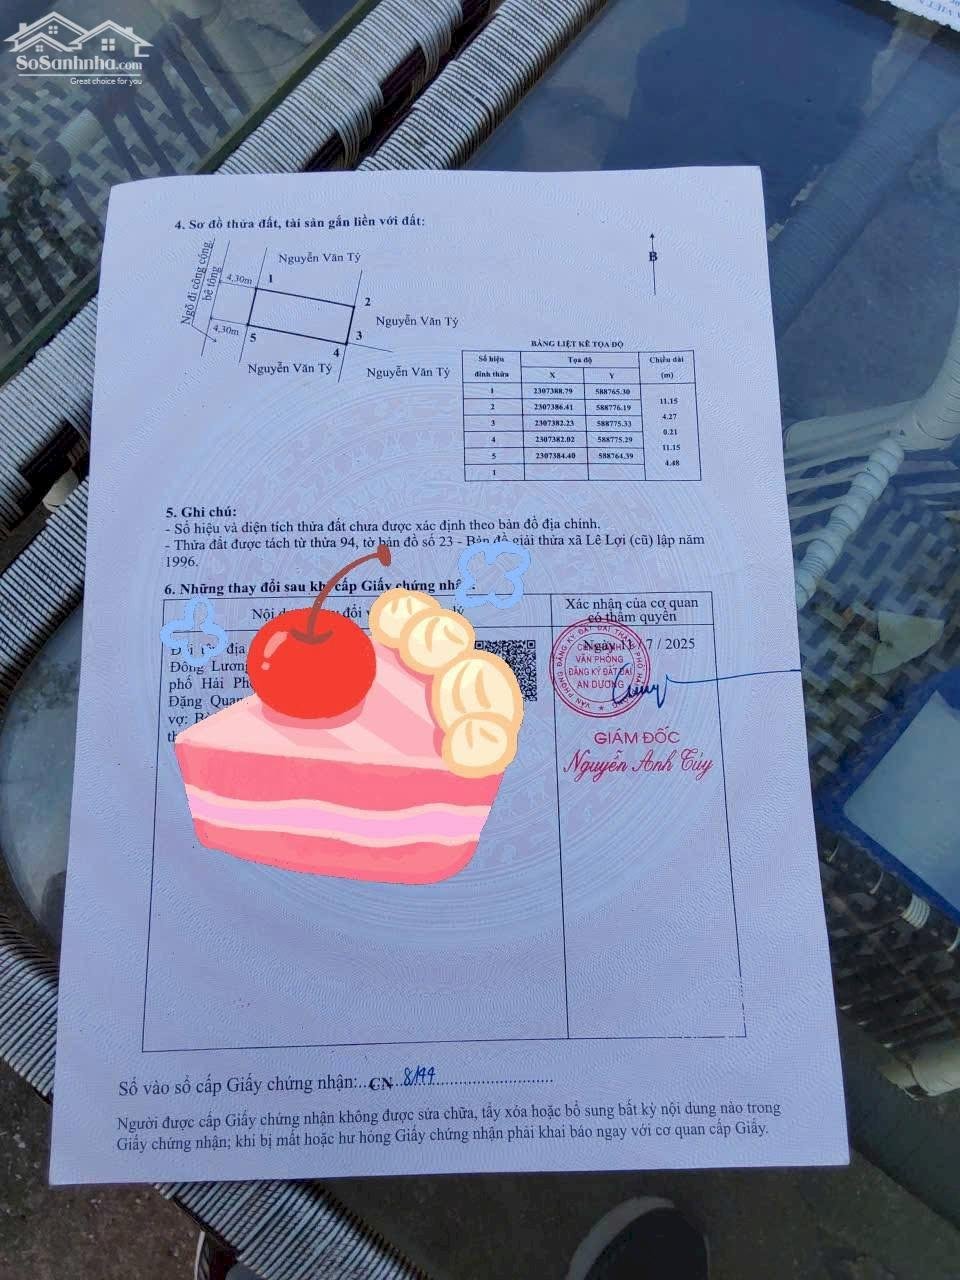 SoSanhnha.com
Great choice for you
4. Sơ đồ thửa đất, tài sản gắn liền với đất:
Ngõ đi công cộng
bê tông
4,30m
1
Nguyễn Văn Tý
2
Nguyễn Văn Tý
3
4,30m
5
4
Nguyễn Văn Tý
Nguyễn Văn Tý
B
BẢNG LIỆT KÊ TỌA ĐỘ
Số hiệu đỉnh thửa Tọa độ Chiều dài (m)
X Y
1 2307388.79 588765.30
11.15
2 2307386.41 588776.19
4.27
3 2307382.23 588775.33
0.21
4 2307382.02 588775.29
11.15
5 2307384.40 588764.39
4.48
1
5. Ghi chú:
- Số hiệu và diện tích thửa đất chưa được xác định theo bản đồ địa chính.
- Thửa đất được tách từ thửa 94, tờ bản đồ số 23 - Bản đồ giải thửa xã Lê Lợi (cũ) lập năm
1996.
6. Những thay đổi sau khi cấp Giấy chứng nhận:
Nội đổi lý
Xác nhận của cơ quan
có thẩm quyền
địa
Đông Lương
phố Hải
Đặng
vợ:
Ngày 11/7/2025
VĂN PHÒNG ĐĂNG KÝ ĐẤT ĐAI THÀNH PHỐ HẢI PHÒNG
CHI NHÁNH
VĂN PHÒNG
ĐĂNG KÝ ĐẤT ĐAI
AN DƯƠNG
GIÁM ĐỐC
Nguyễn Anh Túy
Số vào sổ cấp Giấy chứng nhận:..CN..8199
Người được cấp Giấy chứng nhận không được sửa chữa, tẩy xóa hoặc bổ sung bất kỳ nội dung nào trong
Giấy chứng nhận; khi bị mất hoặc hư hỏng Giấy chứng nhận phải khai báo ngay với cơ quan cấp Giấy.